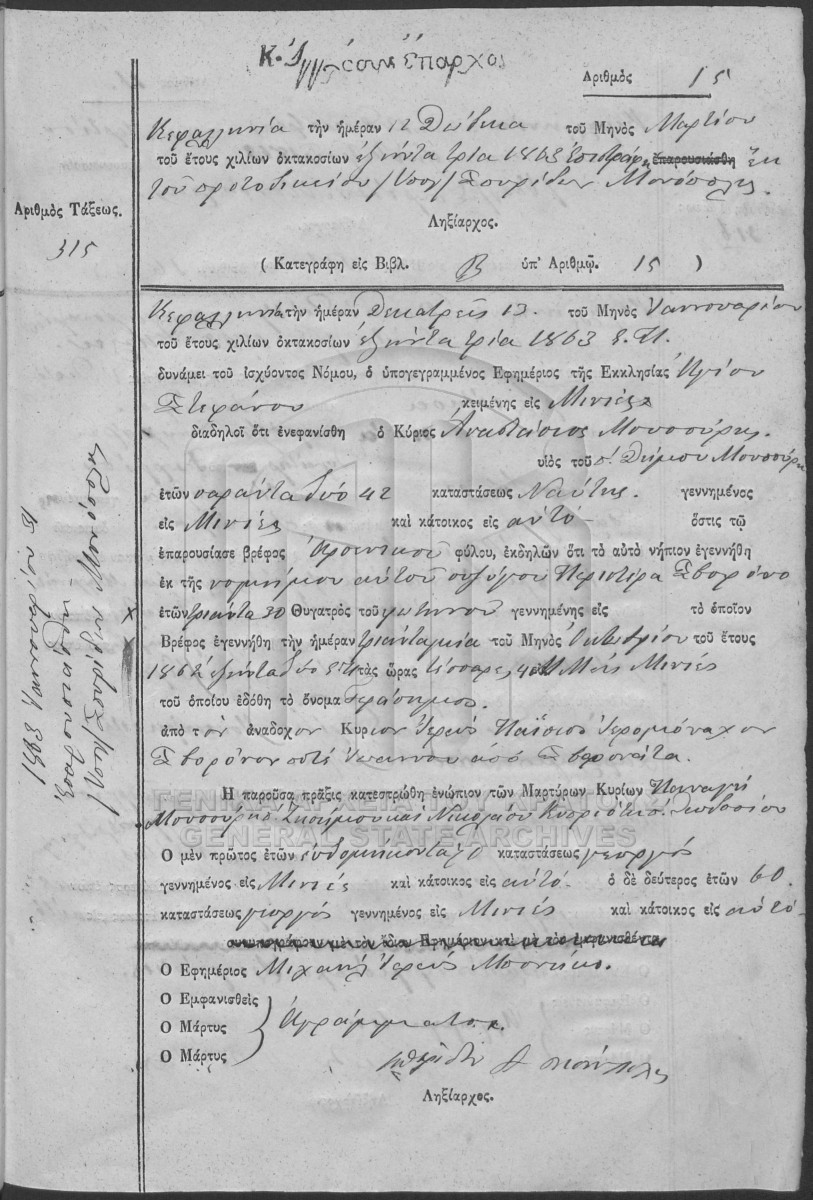 Ἀριθμὸς 15
Κεφαλληνία τὴν ἡμέραν 12 Δώδεκα τοῦ Μηνὸς Μαρτίου
τοῦ ἔτους χιλίων ὀκτακοσίων ἑξήντα τρία 1863 ἐπαρουσιάσθη ἐκ
τοῦ Σπυρίδων
Ληξίαρχος.
( Κατεγράφη εἰς Βιβλ. Β ὑπ' Ἀριθμῷ. 15 )
Ἀριθμὸς Τάξεως.
315
Κεφαλληνία τὴν ἡμέραν Δεκατρεῖς 13. τοῦ Μηνὸς Ἰαννουαρίου
τοῦ ἔτους χιλίων ὀκτακοσίων ἑξήντα τρία 1863 Ε.Π.
δυνάμει τοῦ ἰσχύοντος Νόμου, ὁ ὑπογεγραμμένος Ἐφημέριος τῆς Ἐκκλησίας Ἁγίου
Στεφάνου κειμένης εἰς Μινιές
διαδηλοῖ ὅτι ἐνεφανίσθη ὁ Κύριος Ἀναστάσιος Μουσούρης.
υἱὸς τοῦ π. Δήμου Μουσούρη
ἐτῶν σαράντα δύο 42 καταστάσεως Ναύτης. γεννημένος
εἰς Μινιές καὶ κάτοικος εἰς αὐτό ὅστις τῷ
ἐπαρουσίασε βρέφος Ἀρσενικοῦ φύλου, ἐκδηλῶν ὅτι τὸ αὐτὸ νήπιον ἐγεννήθη
ἐκ τῆς νομίμου αὐτοῦ συζύγου Περιστέρα Σβορόνο
ἐτῶν τριάντα 30 Θυγατρὸς τοῦ φωτεινοῦ γεννημένης εἰς τὸ ὁποῖον
Βρέφος ἐγεννήθη τὴν ἡμέραν τριάντα μία τοῦ Μηνὸς Ὀκτωβρίου τοῦ ἔτους
1862 ἑξήντα δύο Ε.Π. τὰς ὥρας τέσσαρες 4 Μ.Μ. εἰς Μινιές
τοῦ ὁποίου ἐδόθη τὸ ὄνομα Γεράσημος.
ἀπὸ τὸν ἀναδοχον Κυριον Ἱερεύς Παΐσιος Ἱερομόναχον
Σβορόνον ποτέ Ἰωάννου ἀπό Σβορονάτα.
Ἡ παροῦσα πρᾶξις κατεστρώθη ἐνώπιον τῶν Μαρτύρων Κυρίων Παναγή
Μουσούρη καὶ Νικολάου
Ὁ μὲν πρῶτος ἐτῶν ἑβδομήκοντα 70 καταστάσεως γεωργός
γεννημένος εἰς Μινιές καὶ κάτοικος εἰς αὐτό. ὁ δὲ δεύτερος ἐτῶν 60.
καταστάσεως γεωργός γεννημένος εἰς Μινιές καὶ κάτοικος εἰς αὐτό.
συνυπογράφουν μὲ τὸν ἴδιον Ἐφημέριον καὶ μὲ τὸν ἐμφανισθέντα
Ὁ Ἐφημέριος Μιχαήλ Ἱερεύς
Ὁ Ἐμφανισθεὶς
Ὁ Μάρτυς Ἀγράμματοι.
Ὁ Μάρτυς
Ληξίαρχος.
1863 Ἰαννουαρίου 15
ΓΕΝΙΚΑ ΑΡΧΕΙΑ ΤΟΥ ΚΡΑΤΟΥΣ
GENERAL STATE ARCHIVES